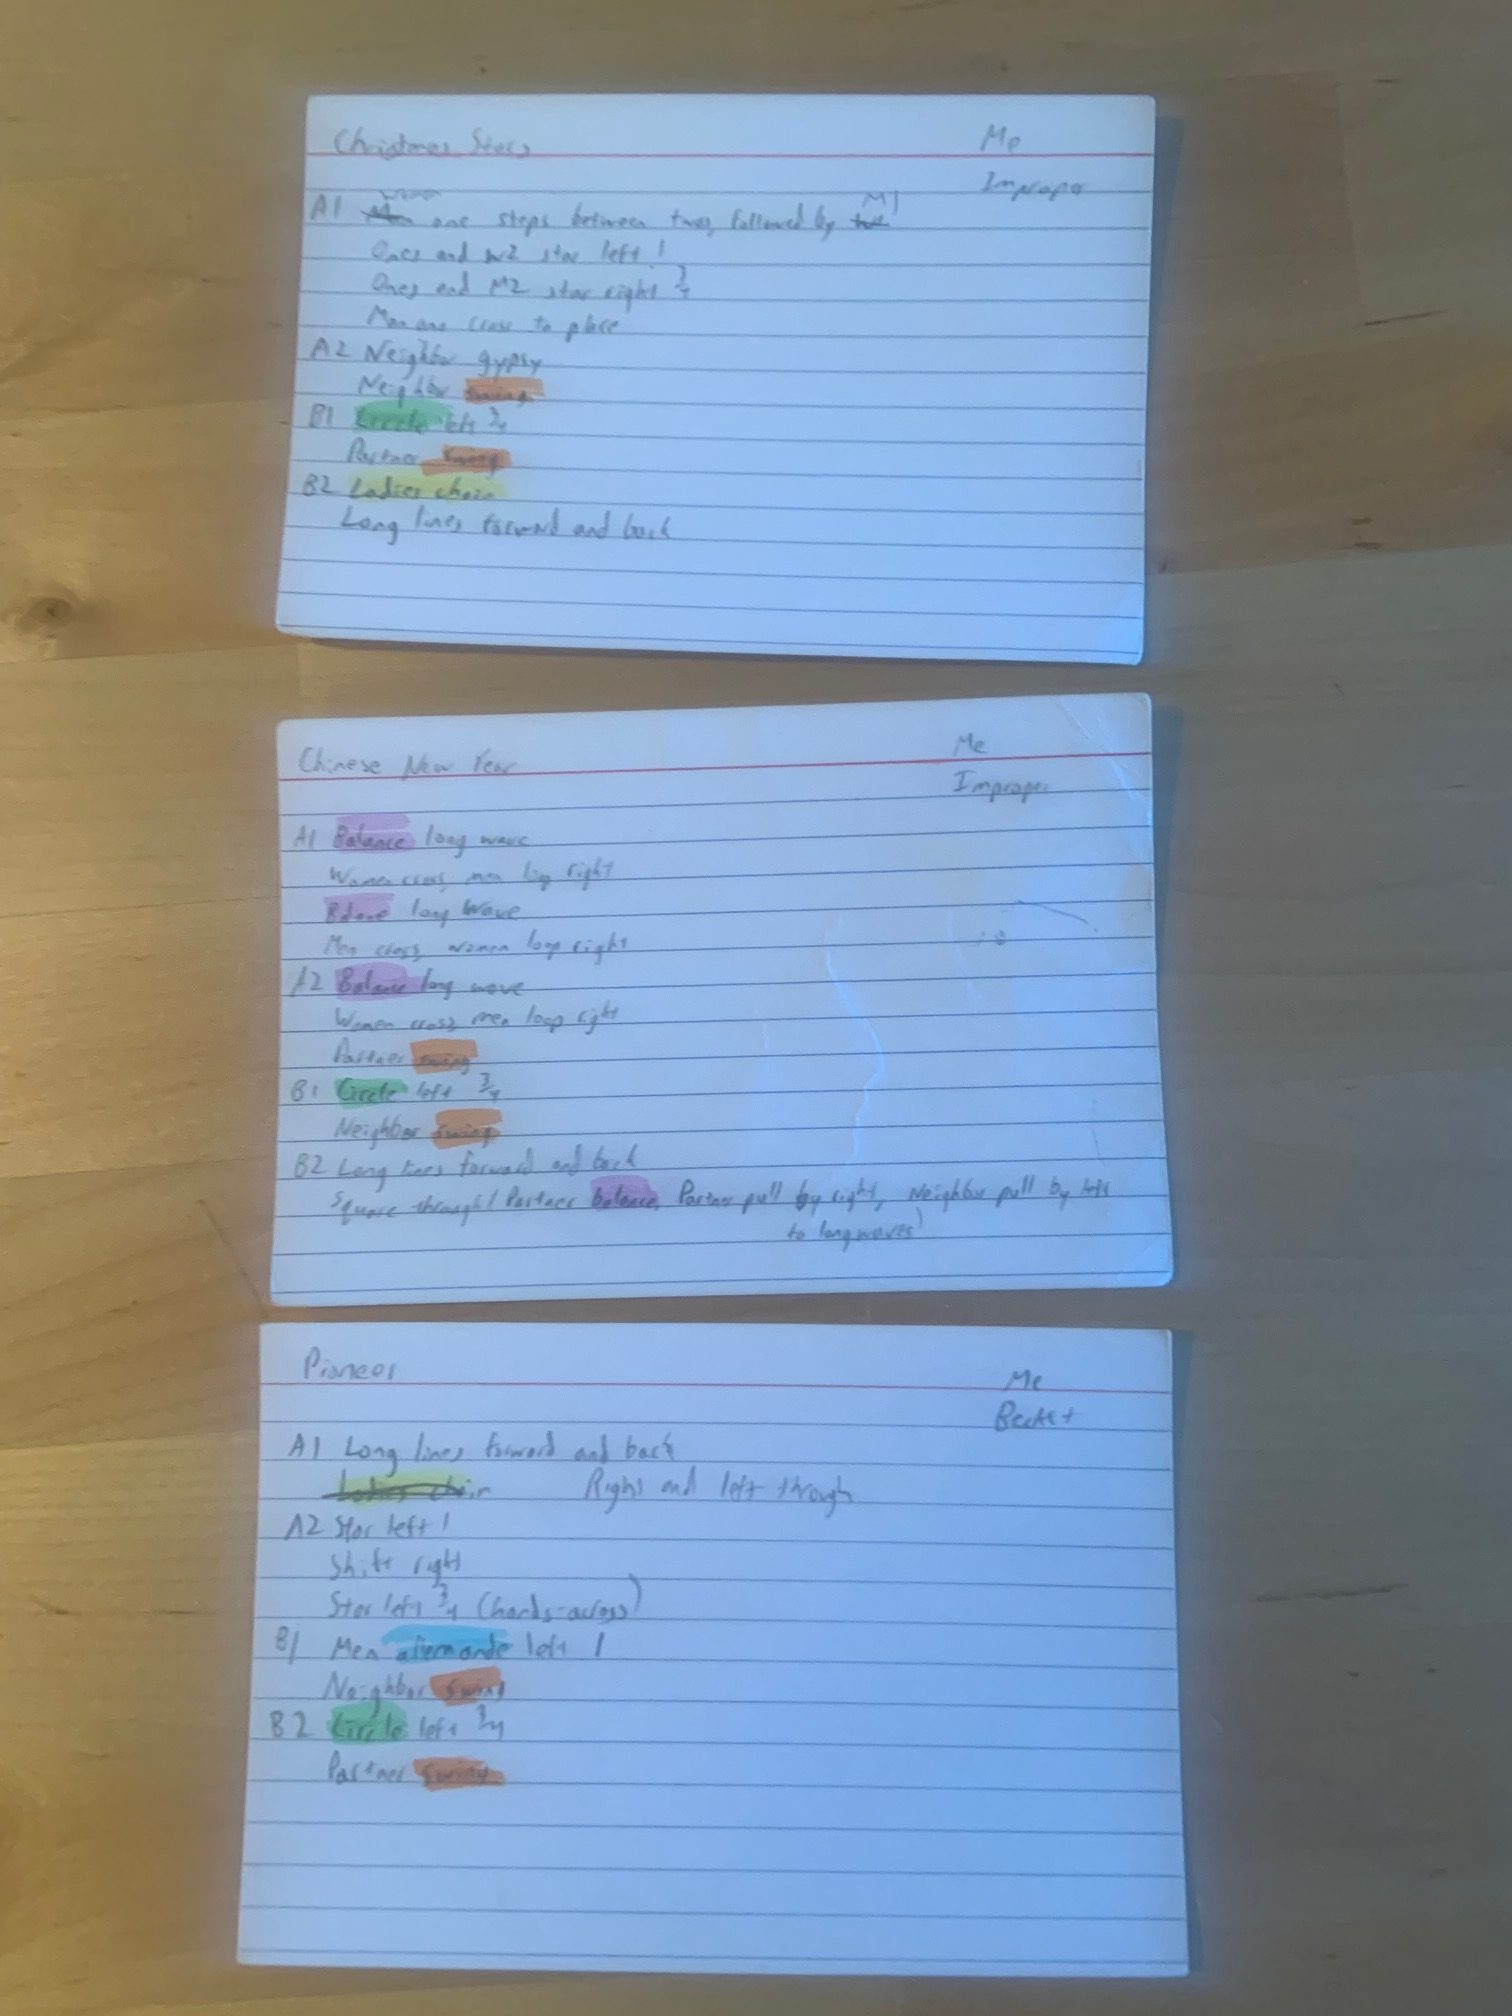 Christmas Stars
Me
Improper
Woman M1
A1 one steps between twos, followed by
Ones and W2 star left 1
Ones and M2 star right 3/4
Man one cross to place
A2 Neighbor gypsy
Neighbor swing
B1 Circle left 3/4
Partner swing
B2 Ladies chain
Long lines forward and back
Chinese New Year
Me
Improper
A1 Balance long wave
Women cross, men loop right
Balance long wave
Men cross, women loop right
A2 Balance long wave
Women cross, men loop right
Partner swing
B1 Circle left 3/4
Neighbor swing
B2 Long lines forward and back
Square through (Partner balance, Partner pull by right, Neighbor pull by left
to long waves)
Pioneer
Me
Becket
A1 Long lines forward and back
Ladies chain Right and left through
A2 Star left 1
Shift right
Star left 3/4 (hands-across)
B1 Men allemande left 1
Neighbor swing
B2 Circle left 3/4
Partner swing